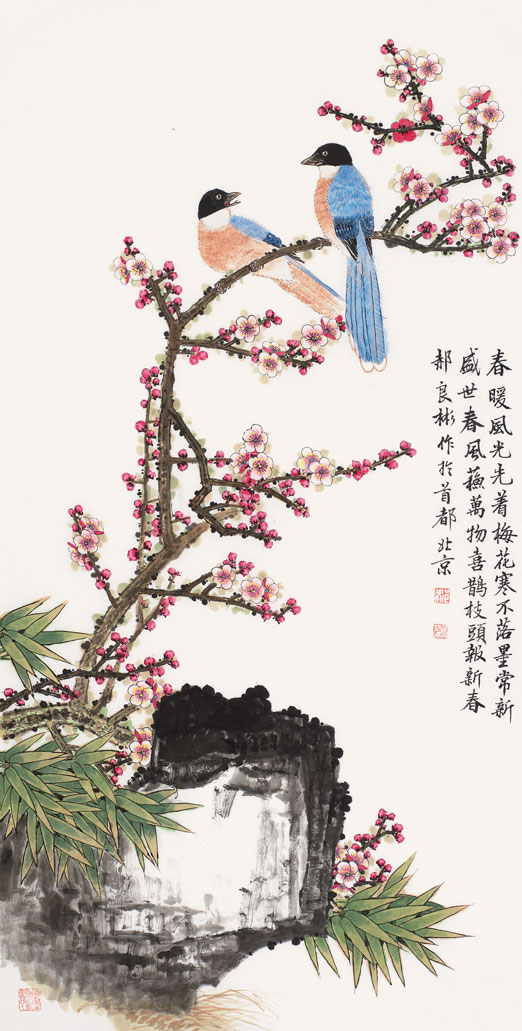 春暖風光先着梅花寒不落墨常新
盛世春風蘓萬物喜鹊枝頭報新春
郝良彬作於首都北京